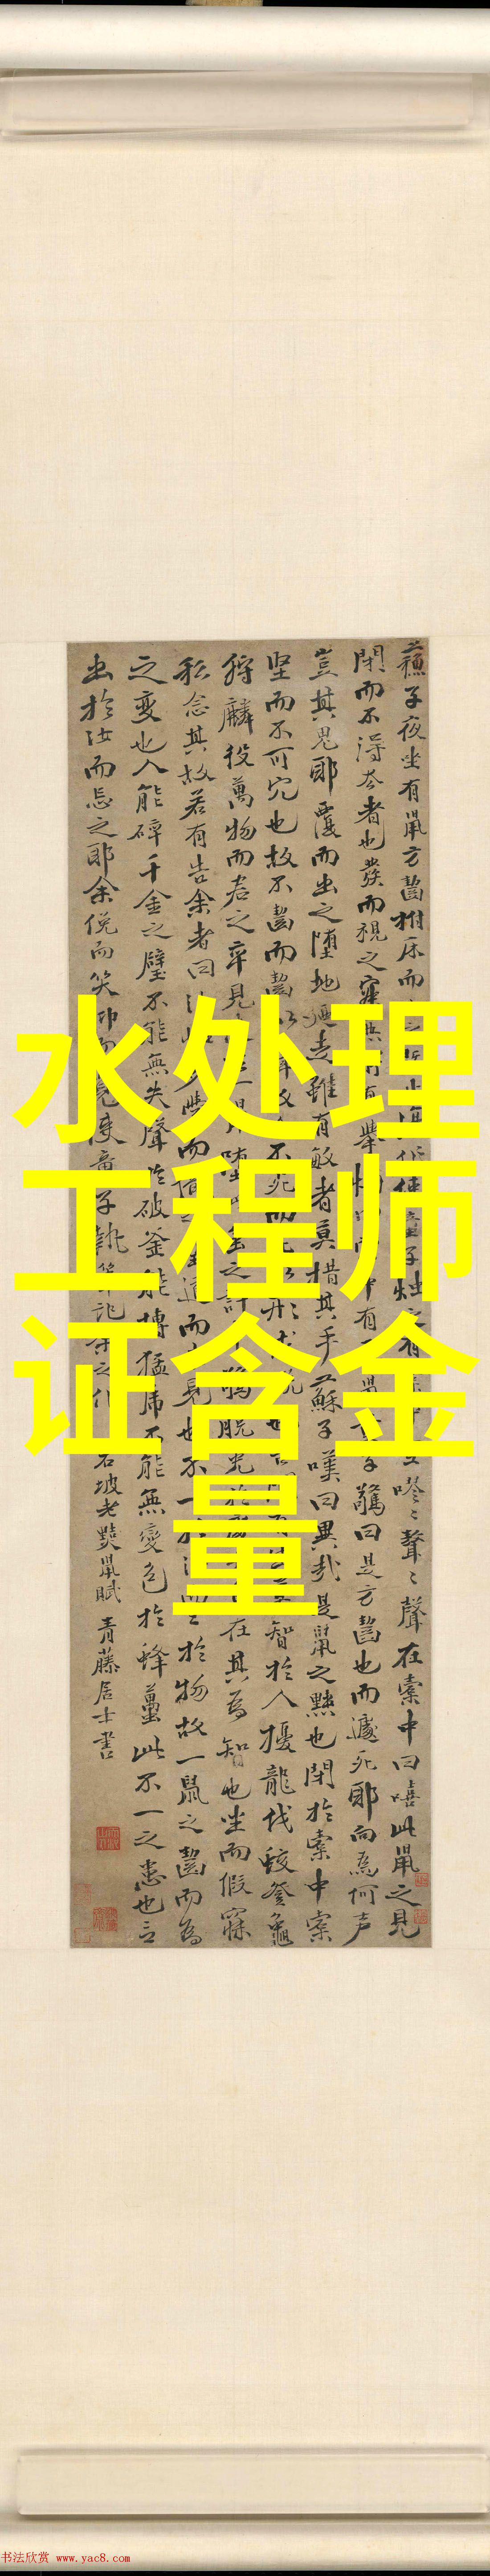 蘇子夜坐有鼠方齧拊床而童子燭之有嘐嘐聱聱聲在橐中曰嘻此鼠之見
閉而不得去者也發而視之寂無有舉中有驚曰是方齧也而遽死耶向為何声
豈其鬼耶覆而出之堕地走雖有敏者莫措其手蘇子嘆曰異哉是鼠之黠也閉於橐中橐
坚而不可穴也故不齧而齧以不死而以形智於人擾龍伐蛟登龜
狩麟役萬物而君之卒見堕之計脫兔在其為智也坐而假寐
私念其故若有告余者曰而道而見也不一於於物故一鼠之齧而為
之變也人能碎千金之璧不能無失聲於破釜能搏猛虎不能無變色於蜂蠆此不一之患也言
出於汝而忘之耶余俛而笑仰而覺使童子執筆記余之作
右坡老黠鼠賦 青藤居士書
水处理
工程师
证含金
量
书法欣赏 www.yac8.com